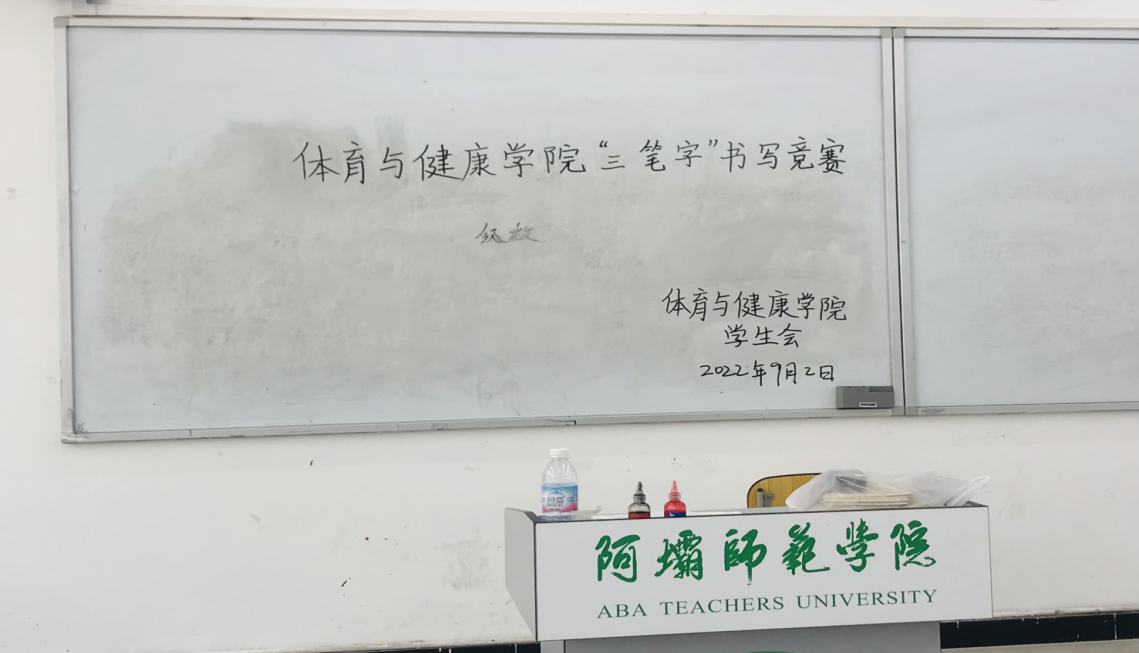 体育与健康学院“三笔字”书写竞赛
体育与健康学院
学生会
2022年9月2日
阿壩師範學院
ABA TEACHERS UNIVERSITY